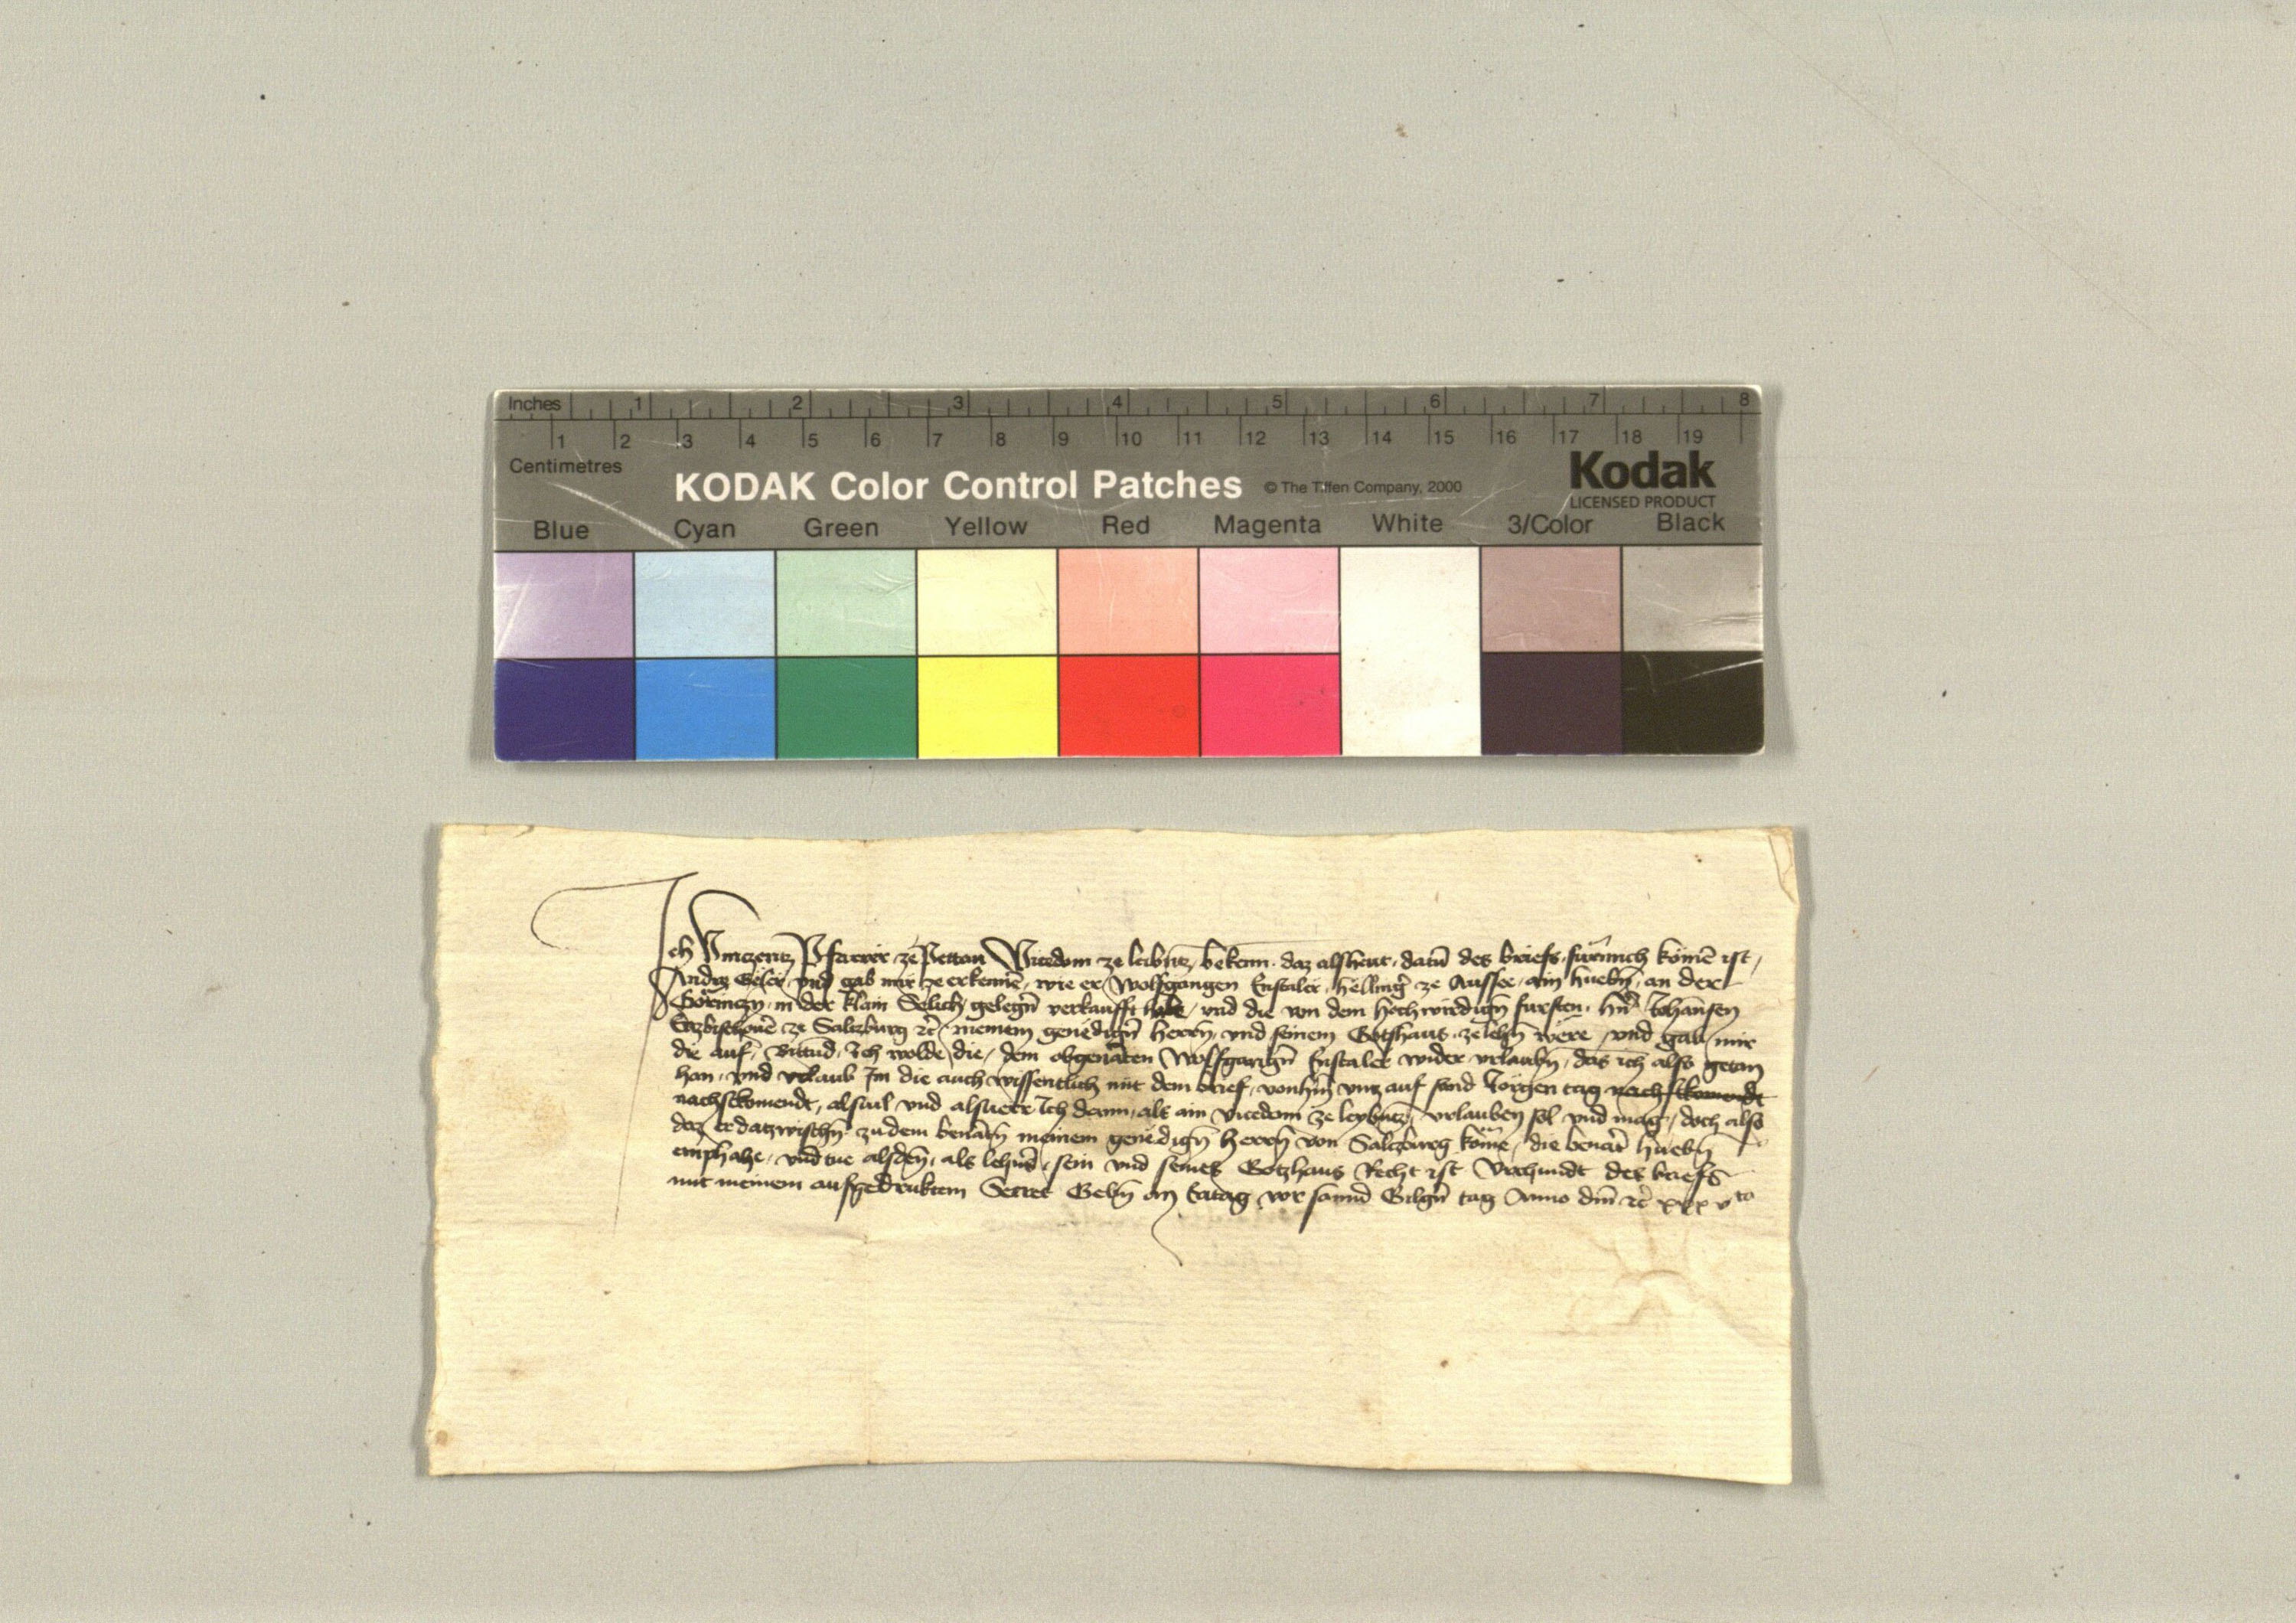 Inches 1 2 3 4 5 6 7 8
1 2 3 4 5 6 7 8 9 10 11 12 13 14 15 16 17 18 19
Centimetres
KODAK Color Control Patches © The Tiffen Company, 2000 Kodak
LICENSED PRODUCT
Blue Cyan Green Yellow Red Magenta White 3/Color Black
Ich Vinczencz Pfarrer ze Pettau Vicedom ze leibncz bekenn daz alsheut datū des briefs furmich komē ist
Andre und gab mir ze erkennē wie er Wolfgangen Enstaler helling ze Aussee ain huebn an der
in der klain Selich gelegn̄ verkaufft habe und die von dem hochwirdign̄ fursten hn̄ Johannsen
Erzbischouē ze Salczburg ꝛc̄ meinem genedign̄ herrn̄ und seinem Gotshaus ze lehn̄ were und gab mir
die auf Bittūd Ich wolde die dem obgenāten Wolfgangn̄ Enstaler wider urlaubn̄ das ich also getan
han und urlaub Im die auch wissentlich mit dem brief vonhin̄ uncz auf sand Jorgen tag nachstkomendt
nachstkomendt alsuil und alsuerr Ich denn als ain vicedom ze leybncz urlauben sol und mag doch also
daz er datzwischn̄ zu dem benātn̄ meinem genedign̄ herrn̄ von Salczburg kōme die benāt huebn̄
emphahe und tue alsden̄ als lehns sein und seines Gotzhaus Recht ist Vrchundt des briefs
mit meinem aufgedruktem Secret Gebn̄ am Eritag vor sannd Gilgn̄ tag Anno dm̄ ꝛc̄ xxx vto